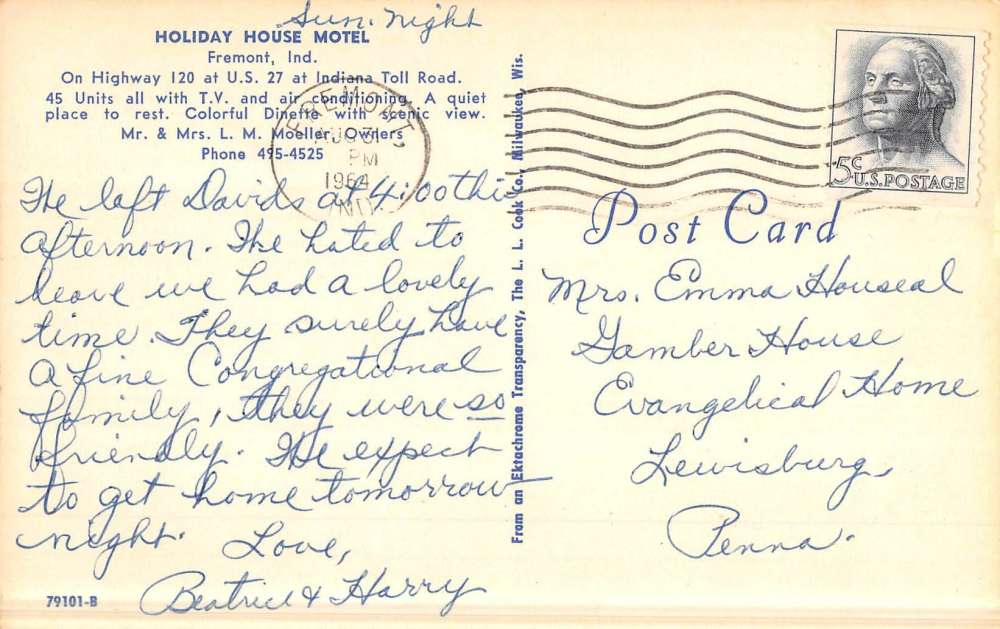 Sun. Night
HOLIDAY HOUSE MOTEL
Fremont, Ind.
On Highway 120 at U.S. 27 at Indiana Toll Road.
45 Units all with T.V. and air conditioning. A quiet
place to rest. Colorful Dinette with scenic view.
Mr. & Mrs. L. M. Moeller, Owners
Phone 495-4525
FREMONT
PM
1964
IND.
We left Davids at 4:00 this
afternoon. We hated to
leave we had a lovely
time. They surely have
a fine Congregational
family, they were so
friendly. We expect
to get home tomorrow
night. Love,
Beatrice & Harry
79101-B
From an Ektachrome Transparency, The L. L. Cook Co., Milwaukee, Wis.
5c
U.S. POSTAGE
Post Card
Mrs. Emma Houseal
Gamber House
Evangelical Home
Lewisburg,
Penna.